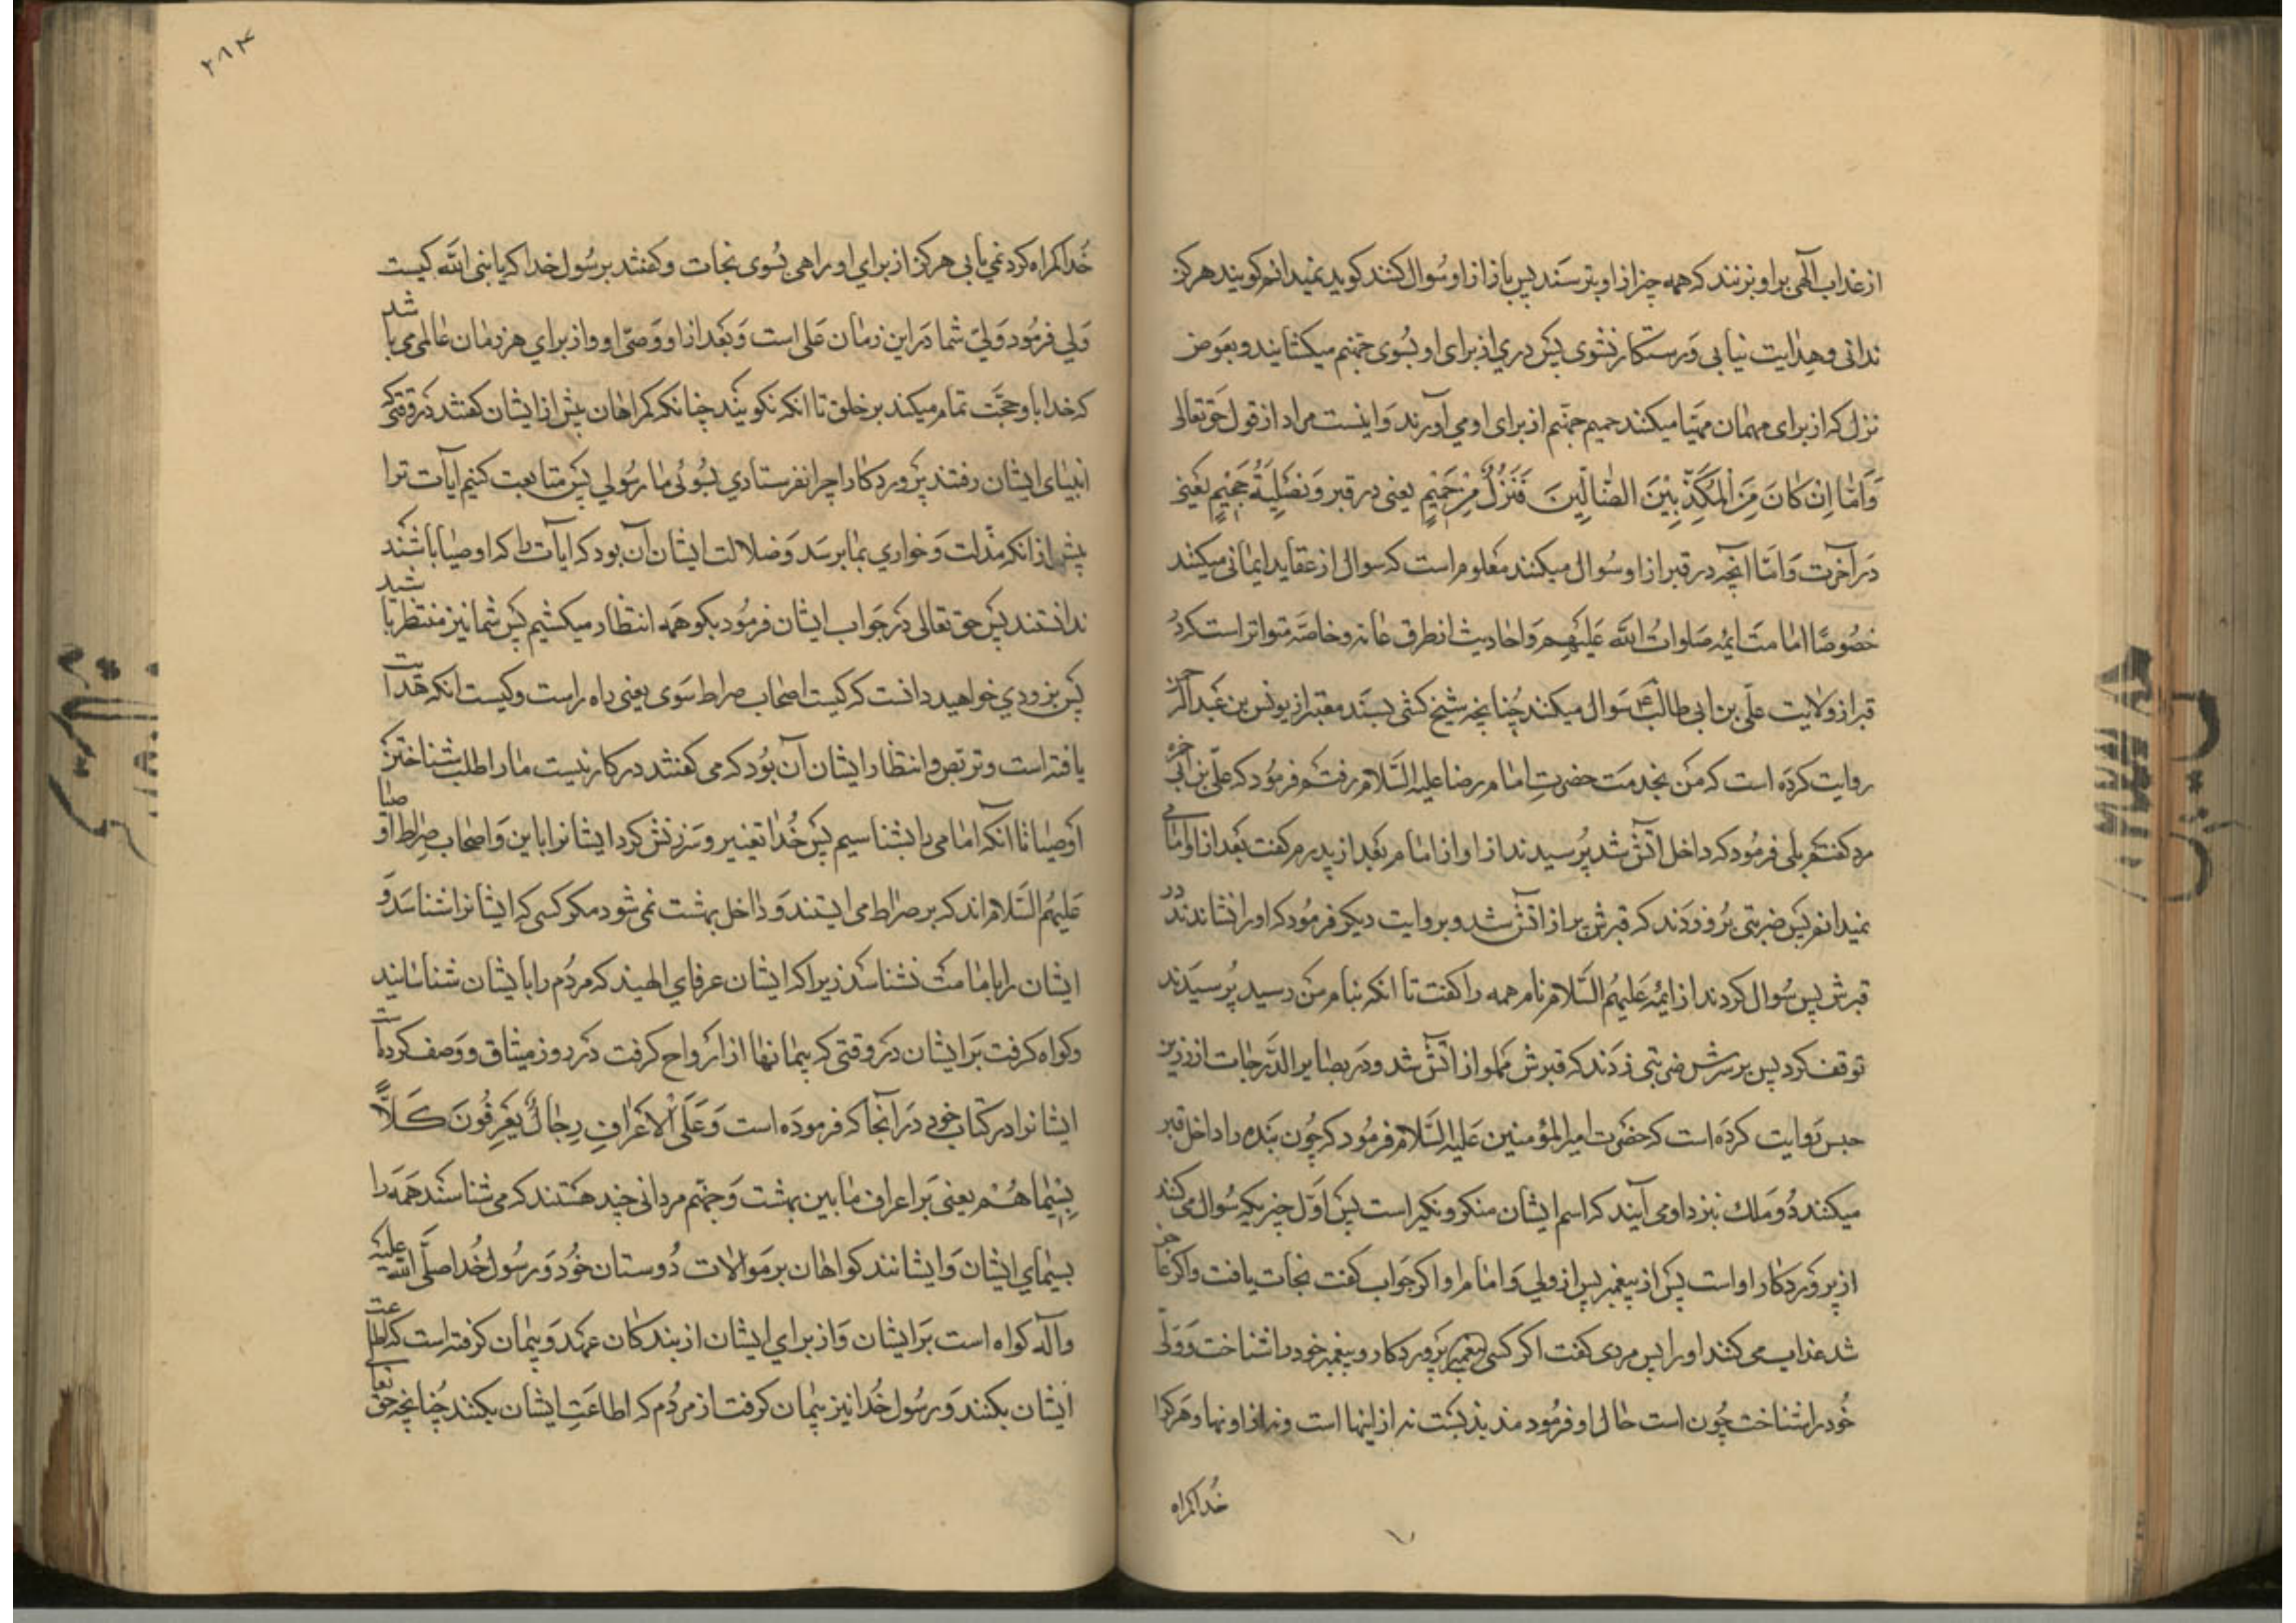 از عذاب آلهی بر او بزنند که همه چیز از او بترسند پس باز از او سُوال کنند کوید نمیدانم کویند هرکز
ندانی و هدایت نیابی و رستکار نشوی پس دری از برای او بسوی جهنم میکشایند و بعوض
نزل که از برای مهمان مهیّا میکنند حمیم جهنم از برای او می آورند و اینست مراد از قول حق تعالی
وَاَمّا اِنْ کانَ مِنَ الْمُکَذِّبینَ الضّالّینَ فَنُزُلٌ مِنْ حَمیمٍ یعنی در قبر وَتَصْلِیَةُ جَحیمٍ یعنی
در آخرت و امّا آنچه در قبر از او سُوال میکنند معلوم است که سوال از عقاید ایمانی میکنند
خصُوصًا امامت ایمه صلوات الله علیهم و احادیث از طرق عامه و خاصّه متواتر است که در
قبر از ولایت علی بن ابی طالب ع سوال میکنند چنانچه شیخ کشی بسند معتبر از یونس بن عبدالرحمن
روایت کرده است که من بخدمت حضرت امام رضا علیه السّلام رفتم فرمود که علی بن ابی حمزه
مرد کفتم بلی فرمود که داخل آتش شد پُرسیدند از او از امام بعد از پدرم کفت بعد از او امامی
نمیدانم پس ضربتی بر او زدند که قبرش پر از آتش شد و بروایت دیکر فرمود که او را نشاندند در
قبرش پس سُوال کردند از ایمه علیهم السّلام نام همه را کفت تا انکه بنام من رسید پُرسیدند
توقف کرد پس بر سرش ضربتی زدند که قبرش مملو از آتش شد و در بصایر الدّرجات از زر بن
حبس روایت کرده است که حضرت امیرالمؤمنین علیه السّلام فرمود که چون بنده را داخل قبر
میکنند دو ملک بنزد او می آیند که اسم ایشان منکر و نکیر است پس اوّل چیزیکه سُوال می کنند
از پروردکار او است پس از پیغمبر پس از ولی و امام او اکر جواب کفت نجات یافت و اکر عاجز
شد عذاب می کنند او را پس مردی کفت اکر کسی پروردکار و پیغمبر خود را شناخت و ولی
خود را نشناخت چون است حال او فرمود مذبذبست نه از اینها است و نه از اونها و هر کرا
خُدا کمراه
۲۸۴
خُدا کمراه کرد نمی یابی هرکز از برای او راهی بسوی نجات و کفتند بر سُول خدا که یا نبی الله کیست
ولی فرمُود ولیّ شما در این زمان علی است و بعد از او وصیّ او و از برای هر زمان عالمی می باشد
که خدا باو حجّت تمام میکند بر خلق تا انکه نکویند چنانکه کمراهان پیش از ایشان کفتند در وقتی که
انبیای ایشان رفتند پروردکارا چرا نفرستادی بسوی ما رسُولی پس متابعت کنیم آیات ترا
پیش از انکه مذلت و خواری بما برسد و ضلالت ایشان آن بود که آیات را که اوصیا باشند
ندانستند پس حق تعالی در جواب ایشان فرمُود بکو همه انتظار میکشیم پس شما نیز منتظر باشید
پس بزودی خواهید دانست که کیست اصحاب صراط سَوی یعنی راه راست و کیست انکه هدایت
یافته است و تربص و انتظار ایشان آن بُود که می کفتند در کار نیست ما را طلب شناختن
اوصیا تا آنکه امامی را بشناسیم پس خُدا تغییر و سرزنش کرد ایشانرا باین و اصحاب صراط اوصیا
علیهُم السّلام اند که بر صراط می ایستند و داخل بهشت نمی شود مکر کسی که ایشانرا شناسد و
ایشان را بامامت نشناسد زیرا که ایشان عرفای الهیند که مردُم را بایشان شناسانید
و کواه کرفت بر ایشان در وقتی که پیمانها از ارواح کرفت در روز میثاق و وصف کرده است
ایشانرا در کتاب خود در آنجا که فرموده است وَعَلَی الْاَعْرافِ رِجالٌ یَعْرِفُونَ کَلّاً
بِسیماهُم یعنی بر اعراف مابین بهشت و جهنم مردانی چند هستند که می شناسند همه را
بسیمای ایشان و ایشانند کواهان بر موالات دُوستان خُود و رسُول خُدا صلّی الله علیه
و آله کواه است بر ایشان و از برای ایشان از بندکان عهد و پیمان کرفته است که اطاعت
ایشان بکنند و رسُول خُدا نیز پیمان کرفت از مردُم که اطاعت ایشان بکنند چُنانچه حق تعالی